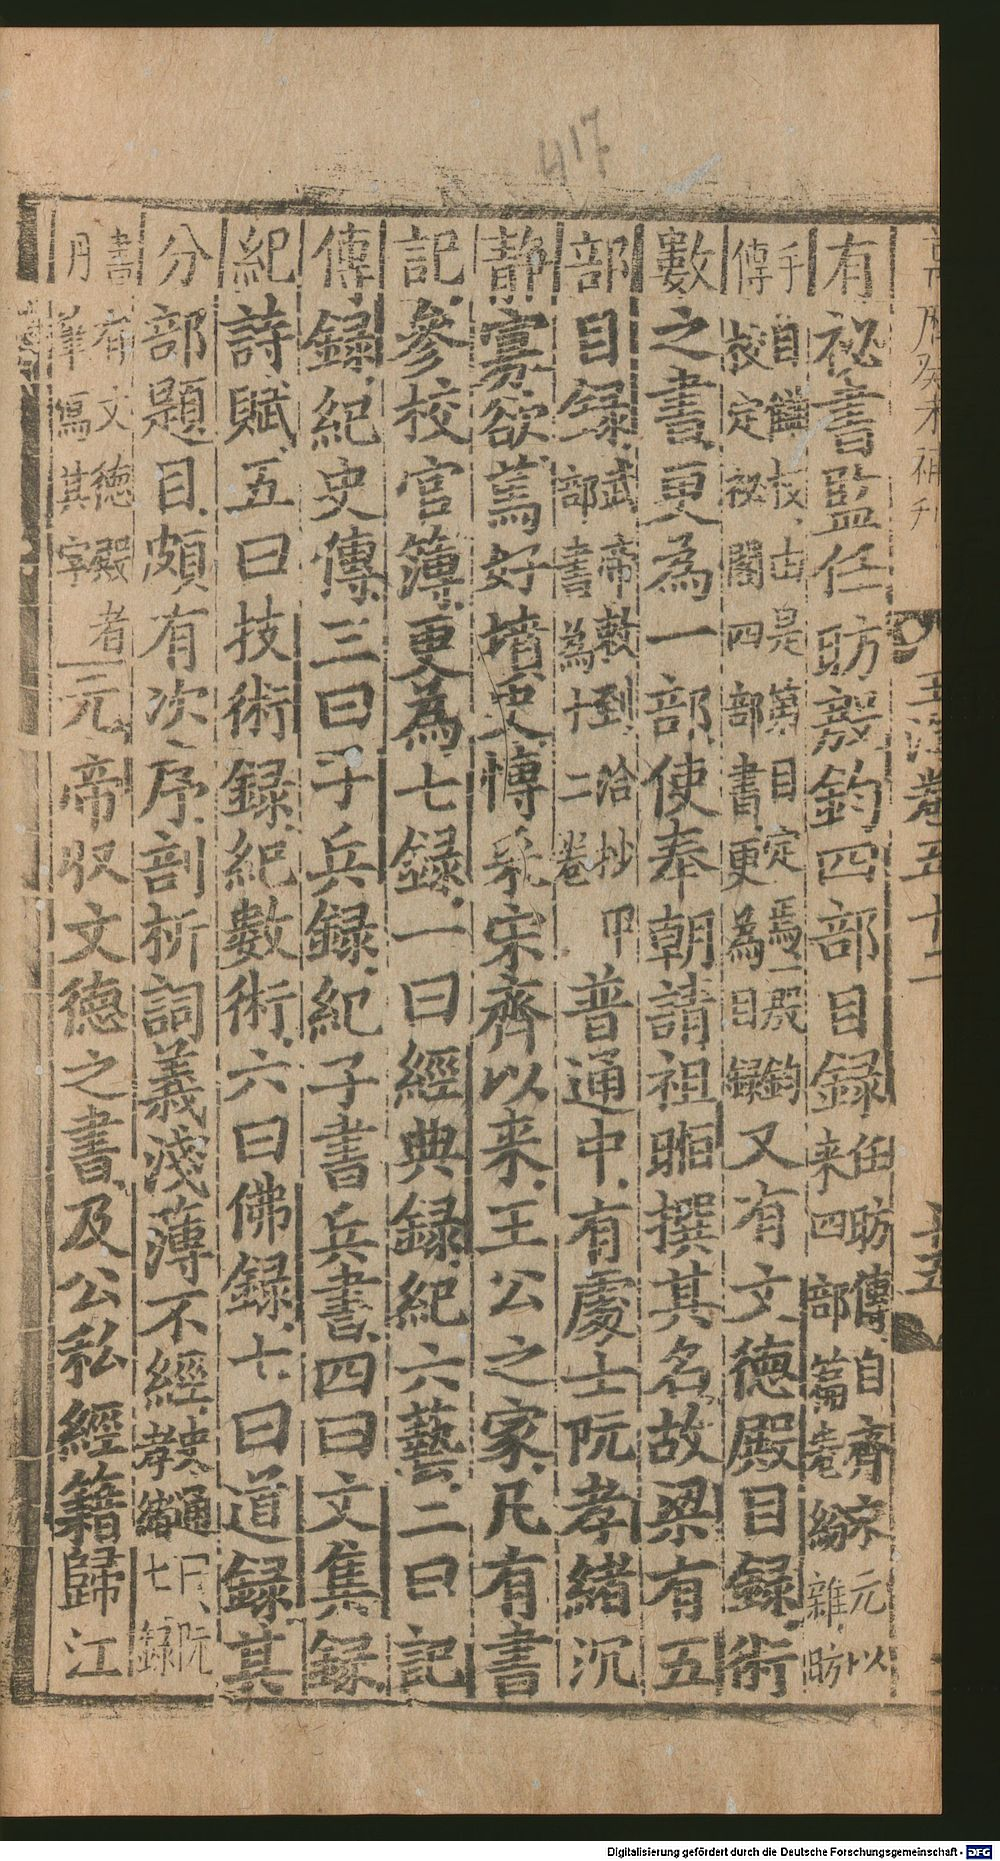 417
玉海卷五十二
十五
有祕書監任昉殷鈞四部目録任昉傳自齊永元以来四部篇卷紛雜昉
手自讎校由是篇目定焉一殷鈞傳校定祕閣四部書更為目録又有文德殿目録術
數之書更為一部使奉朝請祖暅撰其名故梁有五
部目録武帝敕到洽抄甲部書為十二卷普通中有處士阮孝緒沉
静寡欲篤好墳史博采宋齊以来王公之家凡有書
記參校官簿更為七録一曰經典録紀六藝二曰記
傳録紀史傳三曰子兵録紀子書兵書四曰文集録
紀詩賦五曰技術録紀數術六曰佛録七曰道録其
分部題目頗有次序剖析詞義淺薄不經史通曰阮孝緒七録
書有文德殿者丹筆寫其字元帝収文德之書及公私經籍歸江
Digitalisierung gefördert durch die Deutsche Forschungsgemeinschaft - DFG